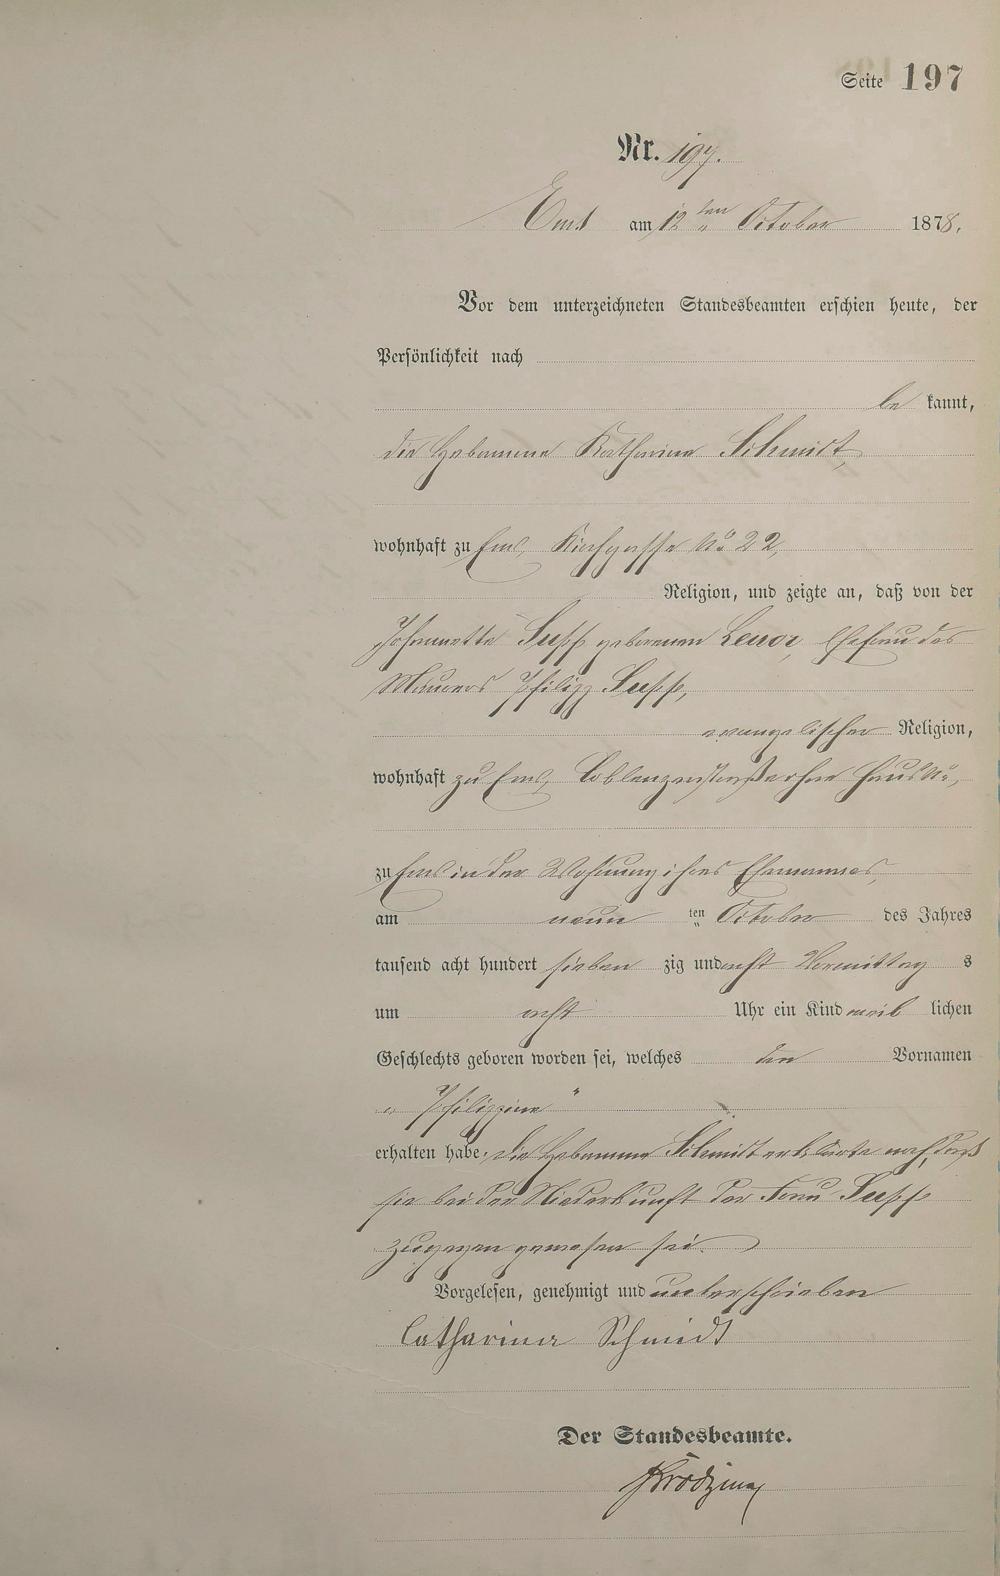 Seite 197
Nr. 197.
Ems am 12 ten October 1878.
Vor dem unterzeichneten Standesbeamten erschien heute, der
Persönlichkeit nach
be kannt,
die Hebamme Katharina Schmidt,
wohnhaft zu Ems, Kirchgasse No 22,
Religion, und zeigte an, daß von der
Johannette Supp geborenen Ehefrau des
Maurers Philipp Supp,
evangelischer Religion,
wohnhaft zu Ems, Coblenzerstraße ohne Haus No,
zu Ems in der Wohnung ihres Ehemannes,
am neun ten October des Jahres
tausend acht hundert sieben zig und acht Vormittag s
um acht Uhr ein Kind weib lichen
Geschlechts geboren worden sei, welches den Vornamen
„Philippine"
erhalten habe. Die Hebamme Schmidt erklärte noch, daß
sie bei der Niederkunft der Frau Supp
zugegen gewesen sei.
Vorgelesen, genehmigt und unterschrieben
Catharina Schmidt
Der Standesbeamte.